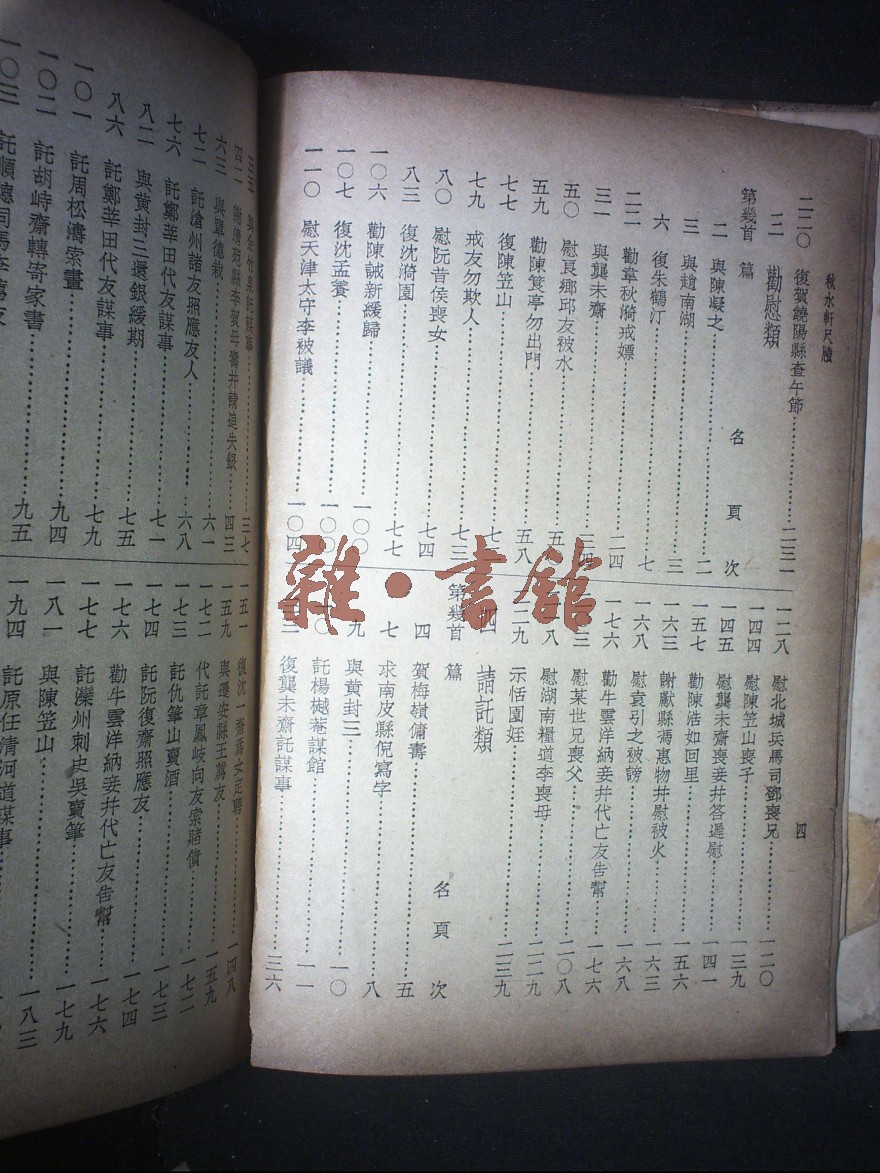 秋水軒尺牘
四
二二〇 復賀饒陽縣查午節 二三一
三 勸慰類
第幾首 篇 名 頁 次
二 與陳凝之 二
三 與趙南湖 三
六 復朱鶴汀 七
二二 勸章秋漪戒嫖 二四
三一 與龔未齋 三四
五〇 慰良鄉邱友被水 五
五九 勸陳篔亭勿出門 五八
七七 復陳笠山 七
七九 戒友勿欺人 七三
八〇 慰阮昔侯喪女 七四
八三 復沈漪園 七七
一〇六 勸陳誠新緩歸 一〇〇
一〇七 復沈孟養 一〇
一一〇 慰天津太守李被議 一〇四
一二八 慰北城兵馬司鄧喪兄 一二〇
一四四 慰陳笠山喪子 一三九
一四五 慰龔未齋喪妾并答遲慰 一四一
一五七 勸陳浩如回里 一五六
一六三 謝獻縣馮惠物并慰被火 一六三
一六八 慰袁引之被謗 一六八
一七六 勸牛雲洋納妾并代亡友告幫 一七六
慰某世兄喪父 二〇八
慰湖南糧道李喪母 二二九
二二九 示恬園姪 二三九
四 請託類
第幾首 篇 名 頁 次
四 賀梅嶺傭壽 五
七 求南皮縣倪寫字 八
九 與黃封三 一〇
託楊樾菴謀館 一一
復龔未齋託謀事 三六
三五 三七
四二 謝清苑縣李賀母壽并請追失銀 四三
六三 與單德栽 六一
七二 託滄州諸友照應友人 六八
七六 託鄭莘田代友謀事 七一
八二 與黃封三還銀緩期 七五
八六 託鄭莘田代友謀事 七九
一〇一 託周松濤索畫 九四
一〇二 託胡峙齋轉寄家書 九五
一〇三 託順德司馬李薦友
一五一 復沈一齋 一四八
一五九 與遷安縣王薦友 一五九
一七二 代託章鳳岐向友索賭債 一七二
一七三 託仇筆山賣酒 一七三
一七四 託阮復齋照應友 一七四
一七六 勸牛雲洋納妾并代亡友告幫 一七六
一七七 託灤州刺史吳賣筆 一七九
一八一 與陳笠山 一八三
一九四 託原任清河道謀事
雜·書館